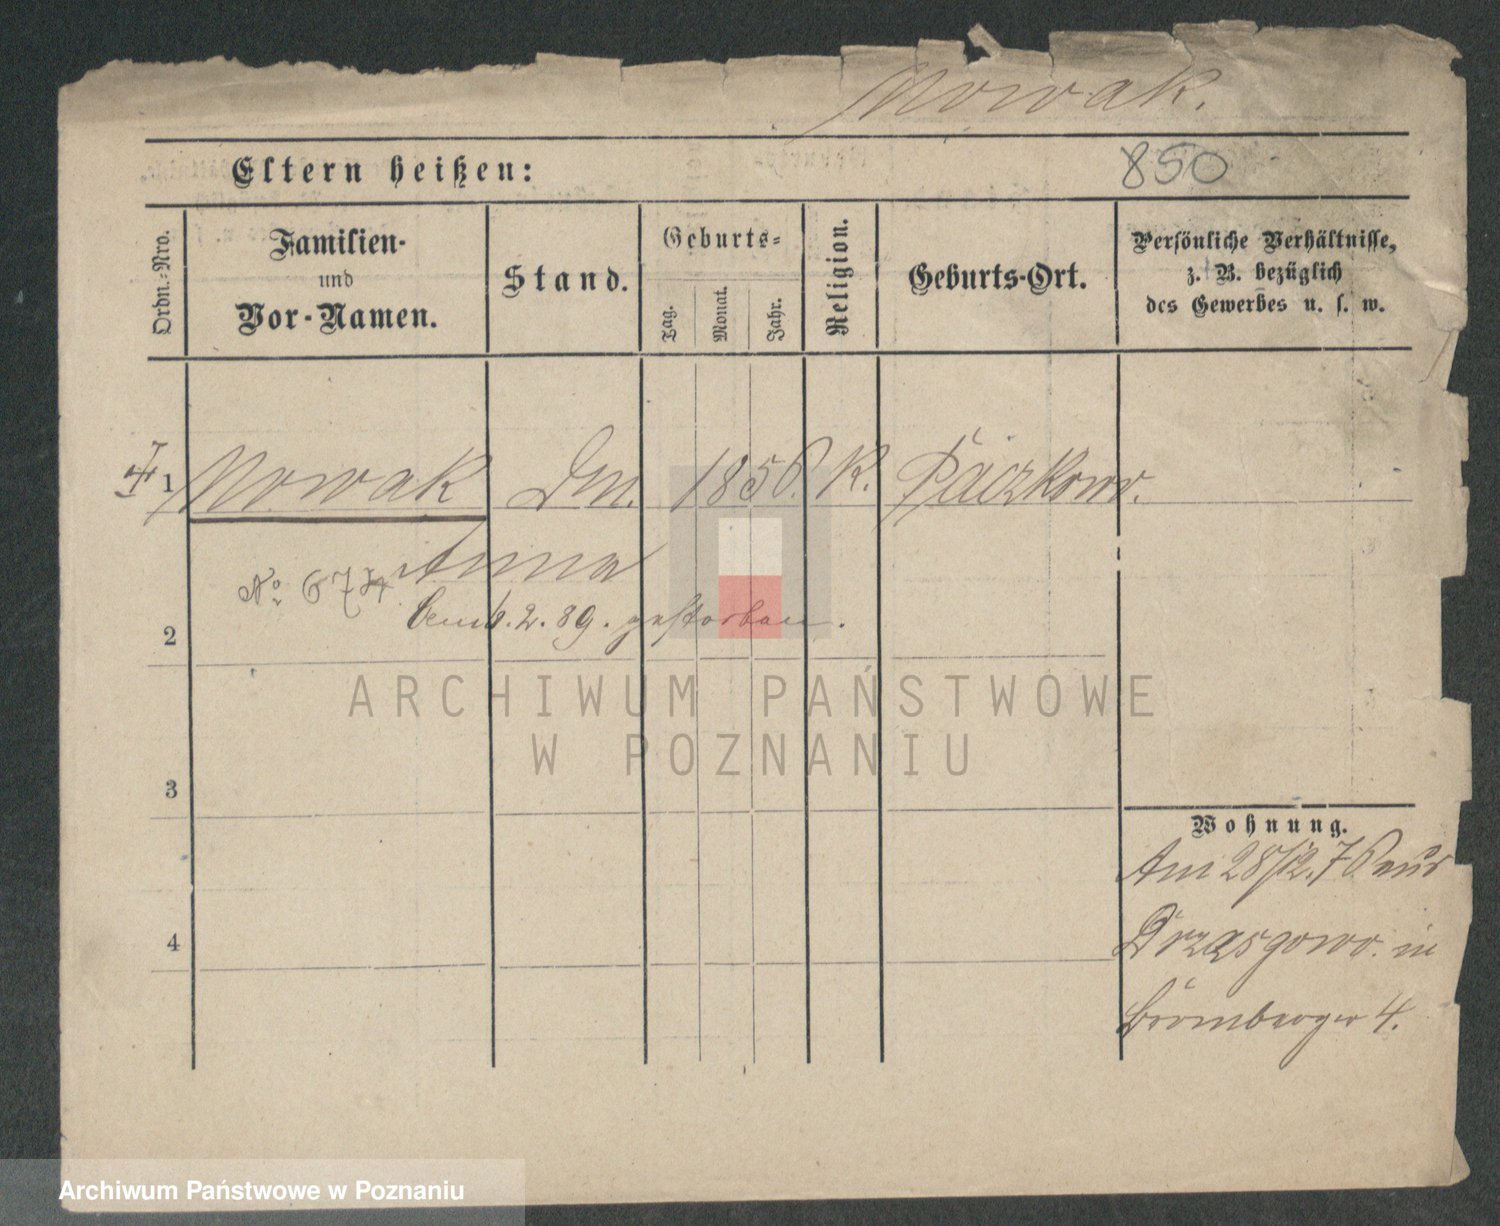 Nowak.
Eltern heißen:
850
Ordn.-Nro.
Familien-
und
Vor-Namen.
Stand.
Geburts-
Tag.
Monat.
Jahr.
Religion.
Geburts-Ort.
Persönliche Verhältnisse,
z. B. bezüglich
des Gewerbes u. s. w.
1 Nowak Dm. 1856. K. Paczkowo.
Anna
No 674
2 6.2.89. gestorben.
ARCHIWUM PAŃSTWOWE
W POZNANIU
3
Wohnung.
Am 28/12.76 aus
4 Drząsgowo. in
Bromberger 4.
Archiwum Państwowe w Poznaniu